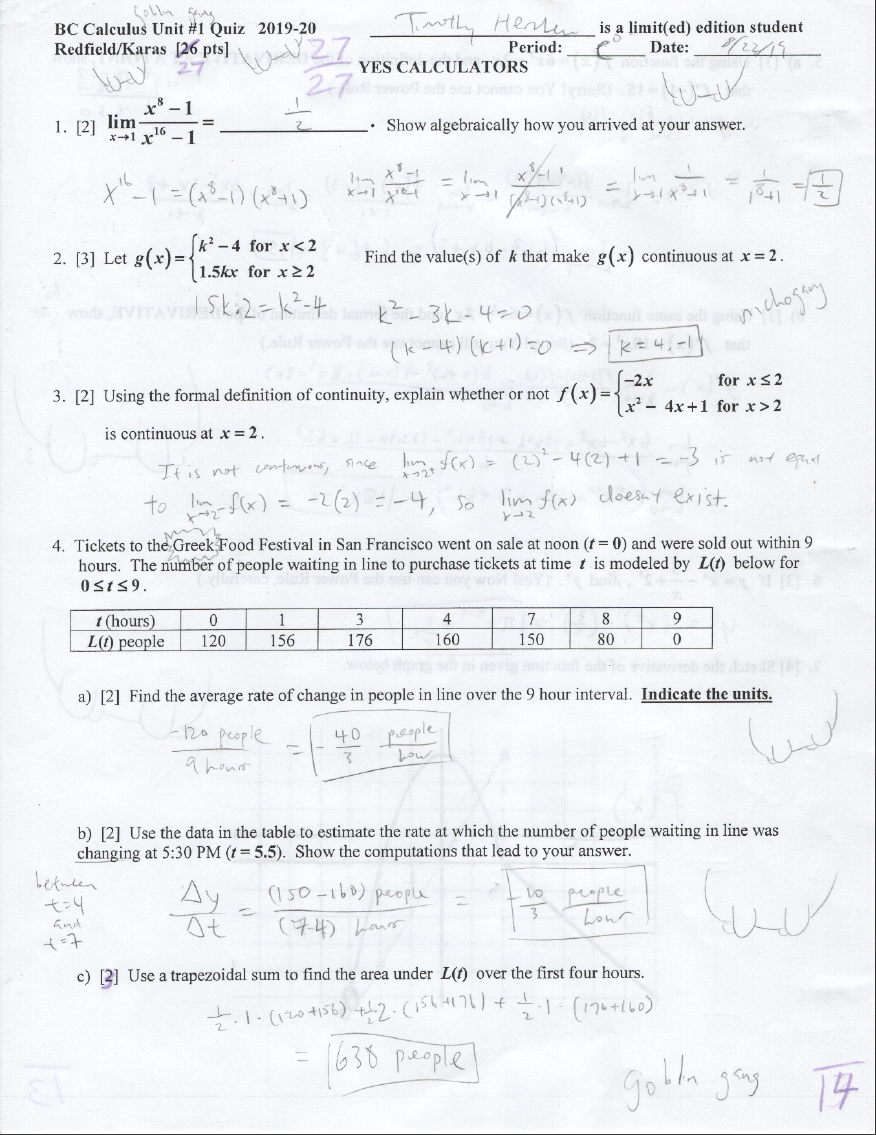 Goblin gang
BC Calculus Unit #1 Quiz 2019-20 Timothy is a limit(ed) edition student
Redfield/Karas [26 pts] 27 27/27 Period: Date: 8/22/19
YES CALCULATORS
1. [2] lim x→1 (x⁸ − 1)/(x¹⁶ − 1) = 1/2 . Show algebraically how you arrived at your answer.
x¹⁶ − 1 = (x⁸ − 1)(x⁸ + 1) lim x→1 (x⁸ − 1)/(x¹⁶ − 1) = lim x→1 (x⁸ − 1)/((x⁸ − 1)(x⁸ + 1)) = lim x→1 1/(x⁸ + 1) = 1/(1⁸ + 1) = 1/2
2. [3] Let g(x) = { k² − 4 for x < 2
1.5kx for x ≥ 2 Find the value(s) of k that make g(x) continuous at x = 2.
1.5k·2 = k² − 4 k² − 3k − 4 = 0
(k − 4)(k + 1) = 0 ⇒ k = 4, −1
3. [2] Using the formal definition of continuity, explain whether or not f(x) = { −2x for x ≤ 2
x² − 4x + 1 for x > 2
is continuous at x = 2.
It is not continuous, since lim x→2⁺ f(x) = (2)² − 4(2) + 1 = −3 is not equal
to lim x→2⁻ f(x) = −2(2) = −4, so lim x→2 f(x) doesnt exist.
4. Tickets to the Greek Food Festival in San Francisco went on sale at noon (t = 0) and were sold out within 9
hours. The number of people waiting in line to purchase tickets at time t is modeled by L(t) below for
0 ≤ t ≤ 9.
t (hours) 0 1 3 4 7 8 9
L(t) people 120 156 176 160 150 80 0
a) [2] Find the average rate of change in people in line over the 9 hour interval. Indicate the units.
−120 people / 9 hours = −40/3 people/hour
b) [2] Use the data in the table to estimate the rate at which the number of people waiting in line was
changing at 5:30 PM (t = 5.5). Show the computations that lead to your answer.
between
t=4
and
t=7
Δy/Δt = (150 − 160) people / (7-4) hours = −10/3 people/hour
c) [2] Use a trapezoidal sum to find the area under L(t) over the first four hours.
1/2 · 1 · (120+156) + 1/2 · 2 · (156+176) + 1/2 · 1 · (176+160)
= 638 people
goblin gang
14